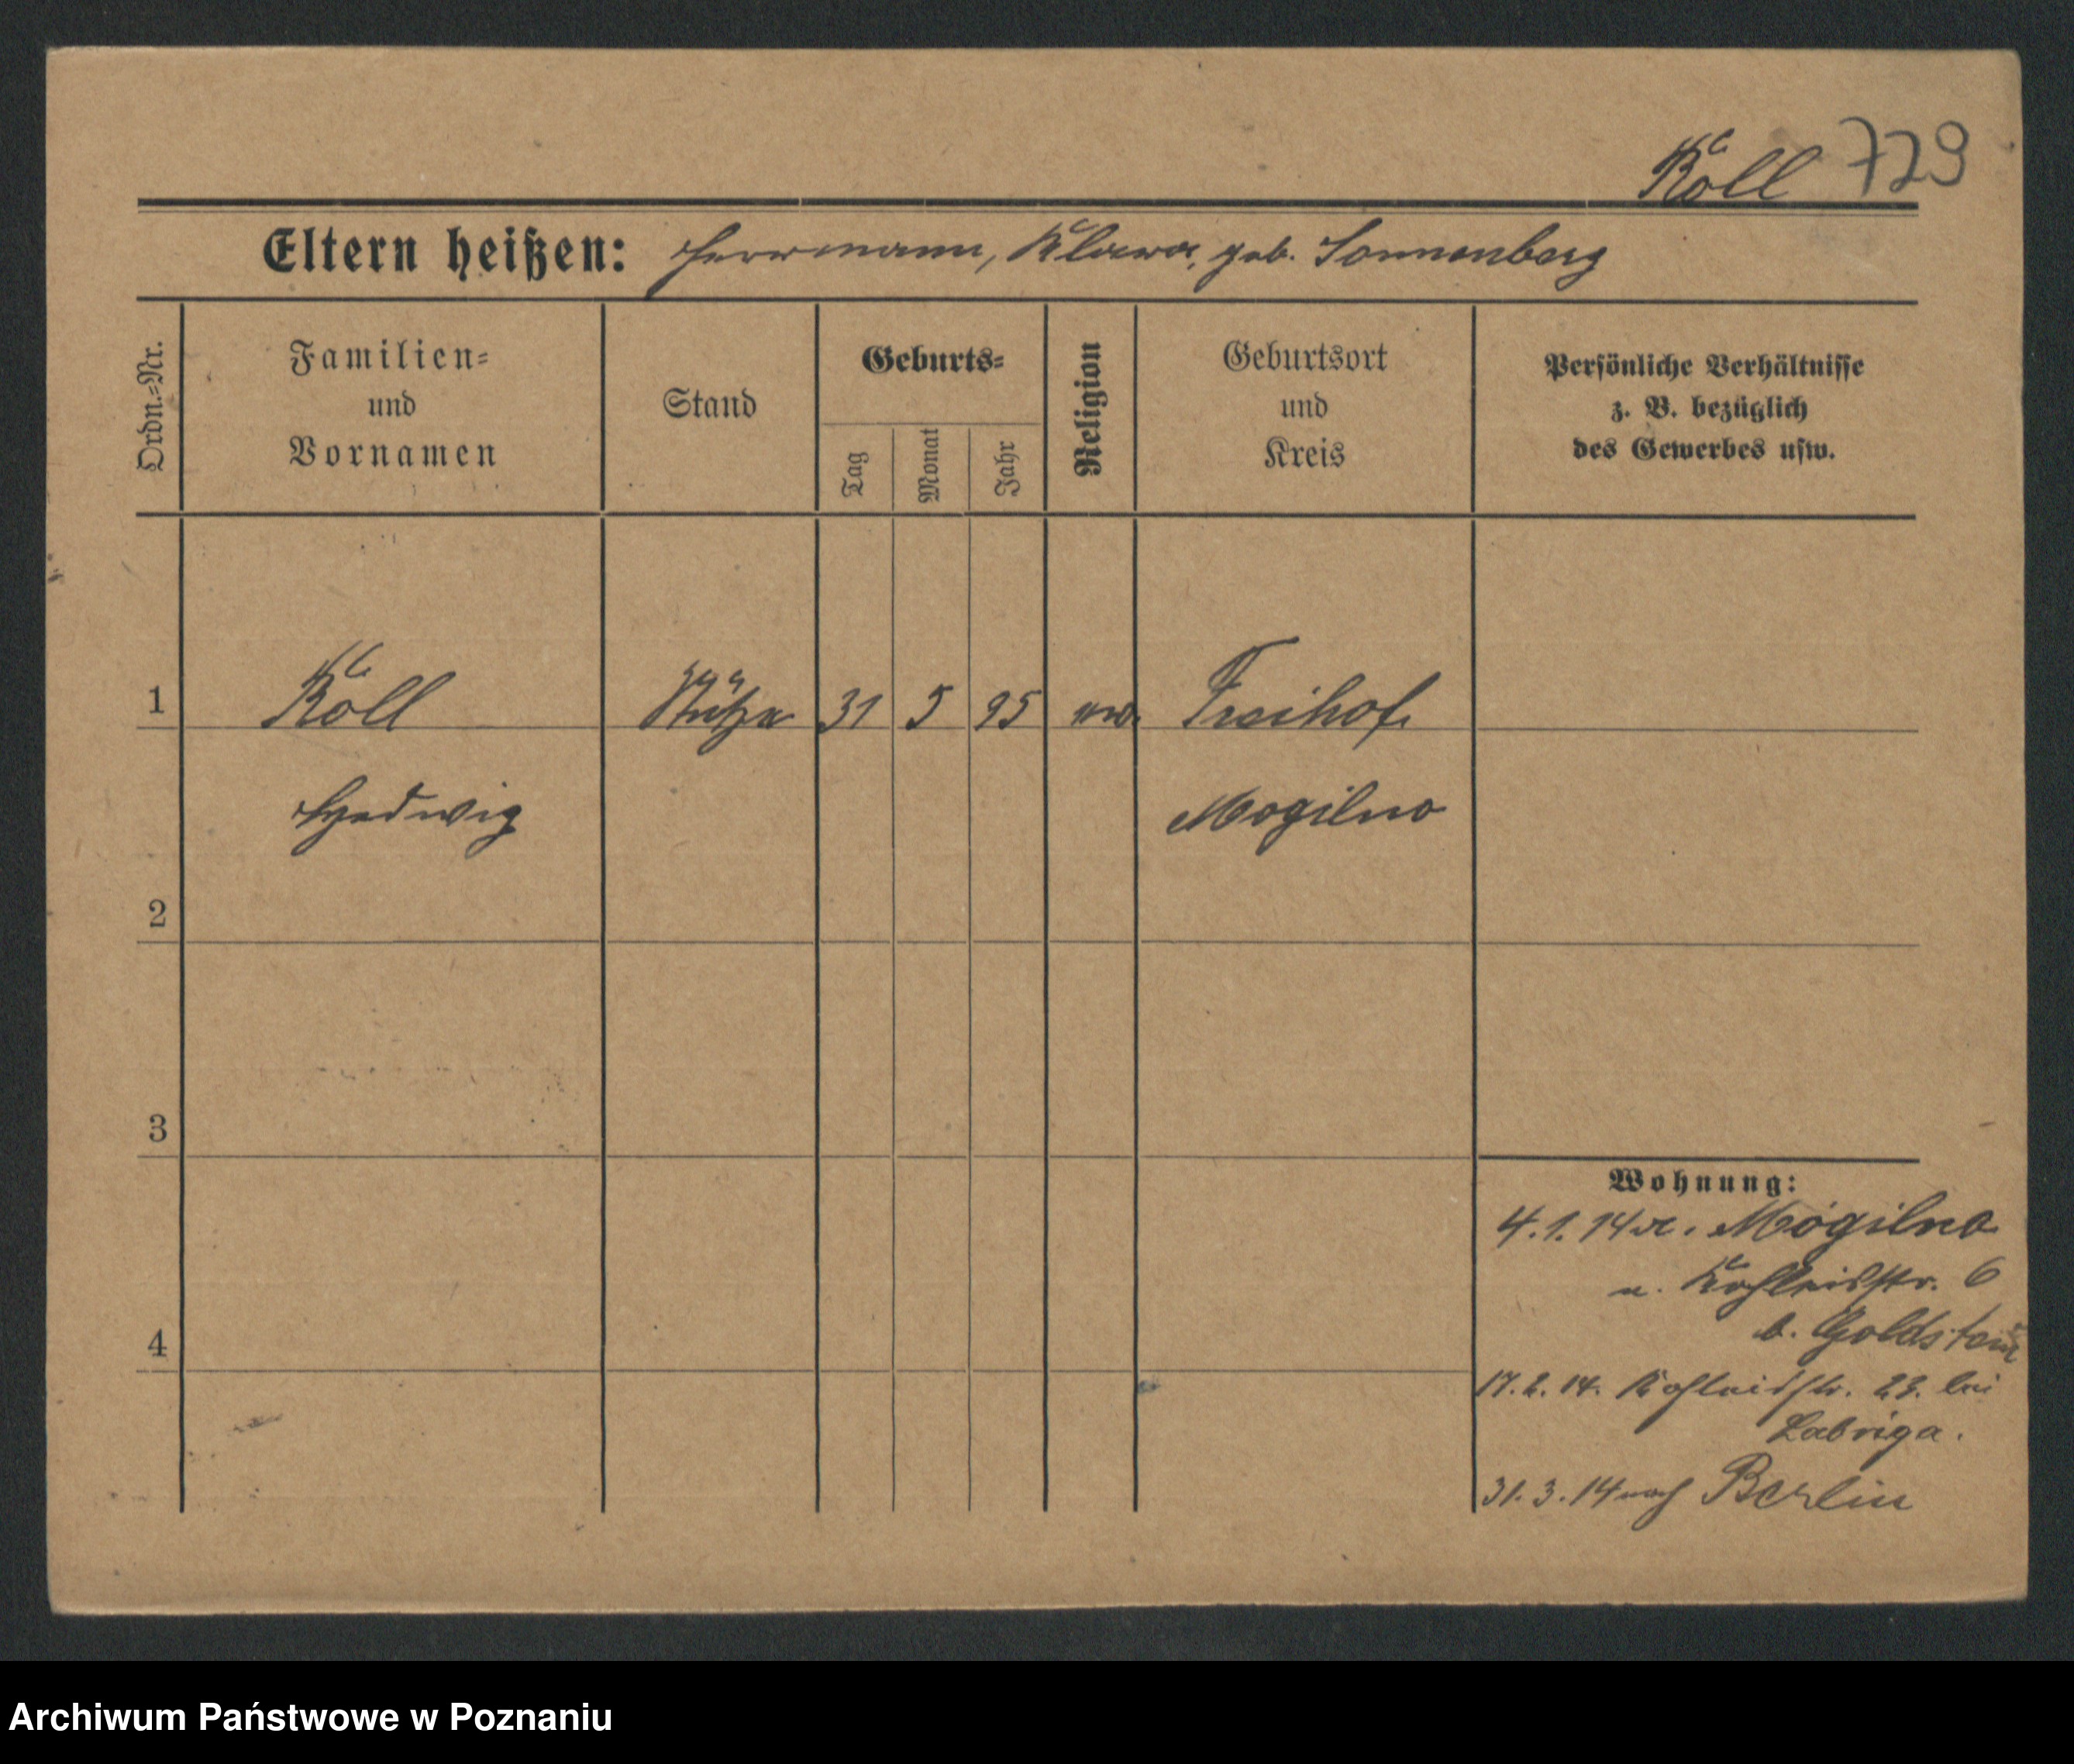 Köll 729
Eltern heißen: Herrmann, Klara, geb. Sonnenberg
Ordn.-Nr.
Familien-
und
Vornamen
Stand
Geburts-
Tag
Monat
Jahr
Religion
Geburtsort
und
Kreis
Persönliche Verhältnisse
z. B. bezüglich
des Gewerbes usw.
1 Köll Stütze 31 5 95 Freihof
Hedwig Mogilno
2
3
4
Wohnung:
4.1.14 v. Mogilno
n. Kohleisstr. 6
b. Goldstein
17.2.14. Kohleisstr. 23. bei
Labriga.
31.3.14 nach Berlin
Archiwum Państwowe w Poznaniu